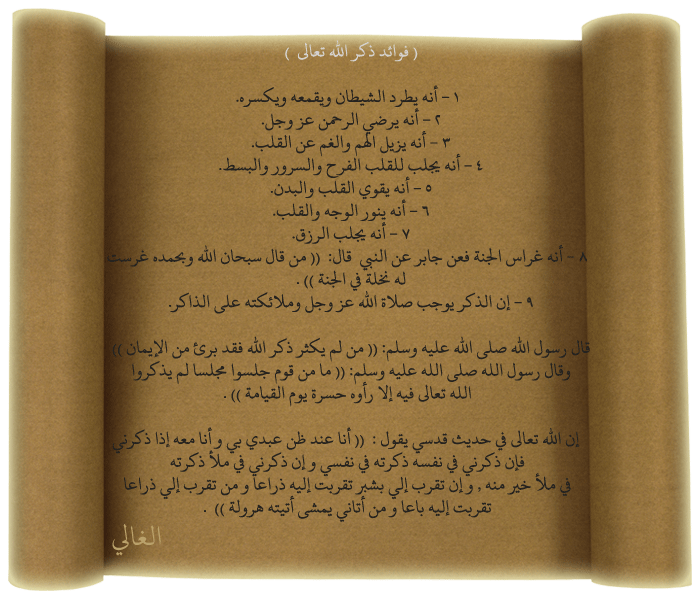 ( فوائد ذكر الله تعالى )
١ - أنه يطرد الشيطان ويقمعه ويكسره.
٢ - أنه يرضي الرحمن عز وجل.
٣ - أنه يزيل الهم والغم عن القلب.
٤ - أنه يجلب للقلب الفرح والسرور والبسط.
٥ - أنه يقوي القلب والبدن.
٦ - أنه ينور الوجه والقلب.
٧ - أنه يجلب الرزق.
٨ - أنه غراس الجنة فعن جابر عن النبي قال: (( من قال سبحان الله وبحمده غرست
له نخلة في الجنة )) .
٩ - إن الذكر يوجب صلاة الله عز وجل وملائكته على الذاكر.
قال رسول الله صلى الله عليه وسلم: (( من لم يكثر ذكر الله فقد برئ من الإيمان ))
وقال رسول الله صلى الله عليه وسلم: (( ما من قوم جلسوا مجلسا لم يذكروا
الله تعالى فيه إلا رأوه حسرة يوم القيامة )) .
إن الله تعالى في حديث قدسي يقول : (( أنا عند ظن عبدي بي و أنا معه إذا ذكرني
فإن ذكرني في نفسه ذكرته في نفسي و إن ذكرني في ملأ ذكرته
في ملأ خير منه , و إن تقرب إلي بشبر تقربت إليه ذراعا و من تقرب إلي ذراعا
تقربت إليه باعا و من أتاني يمشى أتيته هرولة )) .
الغالي